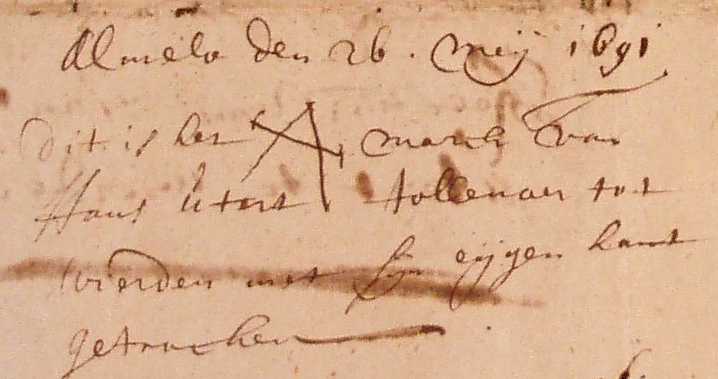 Almelo den 26. Meij 1691
dit is het marck van
Hans tollenaer tot
wierden met sijn eijgen hant
getrocken